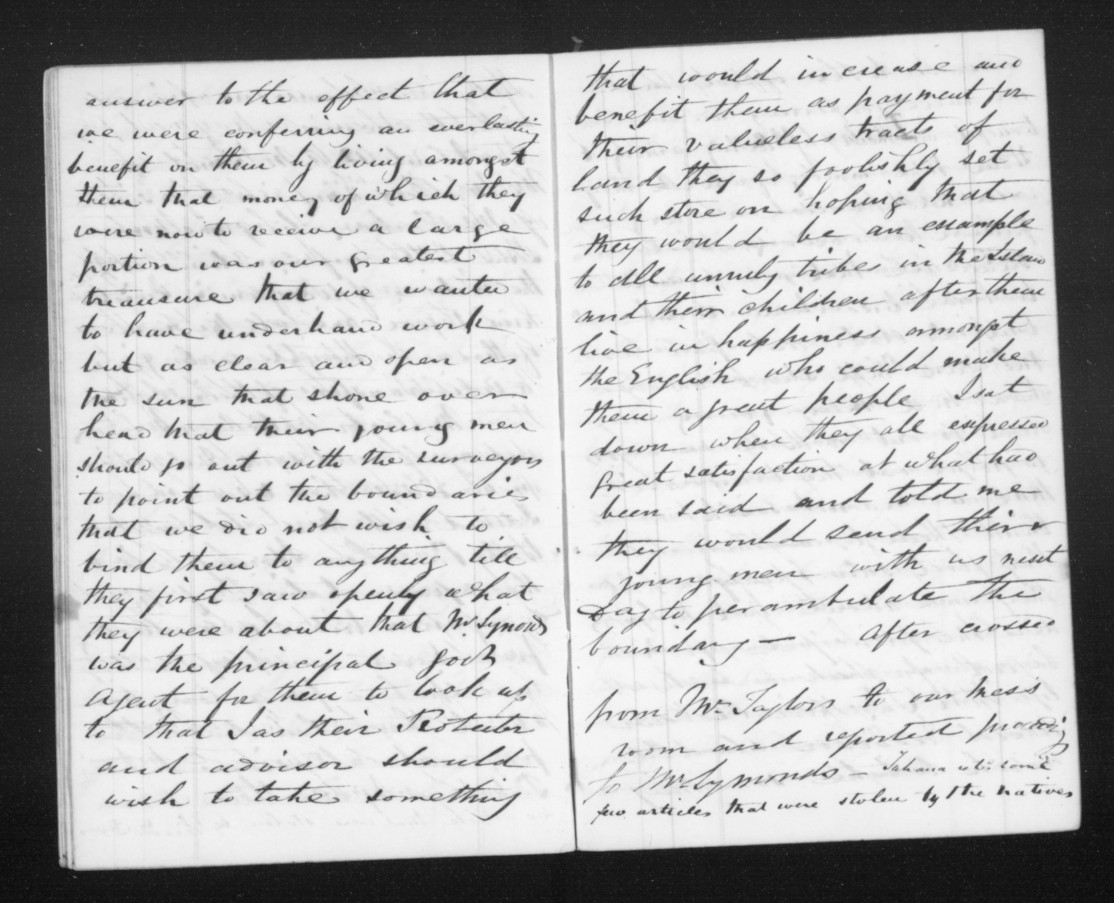 answer to the effect that
we were conferring an everlasting
benefit on them by living amongst
them that money of which they
were now to receive a large
portion was our greatest
treausure that we wanted
to have underhand work
but as clear and open as
the sun that shone over
head that their young men
should go out with the surveyors
to point out the boundaries
that we did not wish to
bind them to anything till
they first saw openly what
they were about that Mr Symonds
was the principal Govt
Agent for them to look up
to that I as their Protector
and advisor should
wish to take something
that would increase and
benefit them as payment for
their valueless tracts of
land they so foolishly set
such store on hoping that
they would be an example
to all unruly tribes in the Island
and their children after them
live in happiness amongst
the English who could make
them a great people I sat
down when they all expressed
great satisfaction at what had
been said and told me
they would send their
young men with us next
day to perambulate the
boundary — After crossed
from Mr Taylors to our Mess
room and reported
to Mr Symonds —
few articles that were stolen by the natives